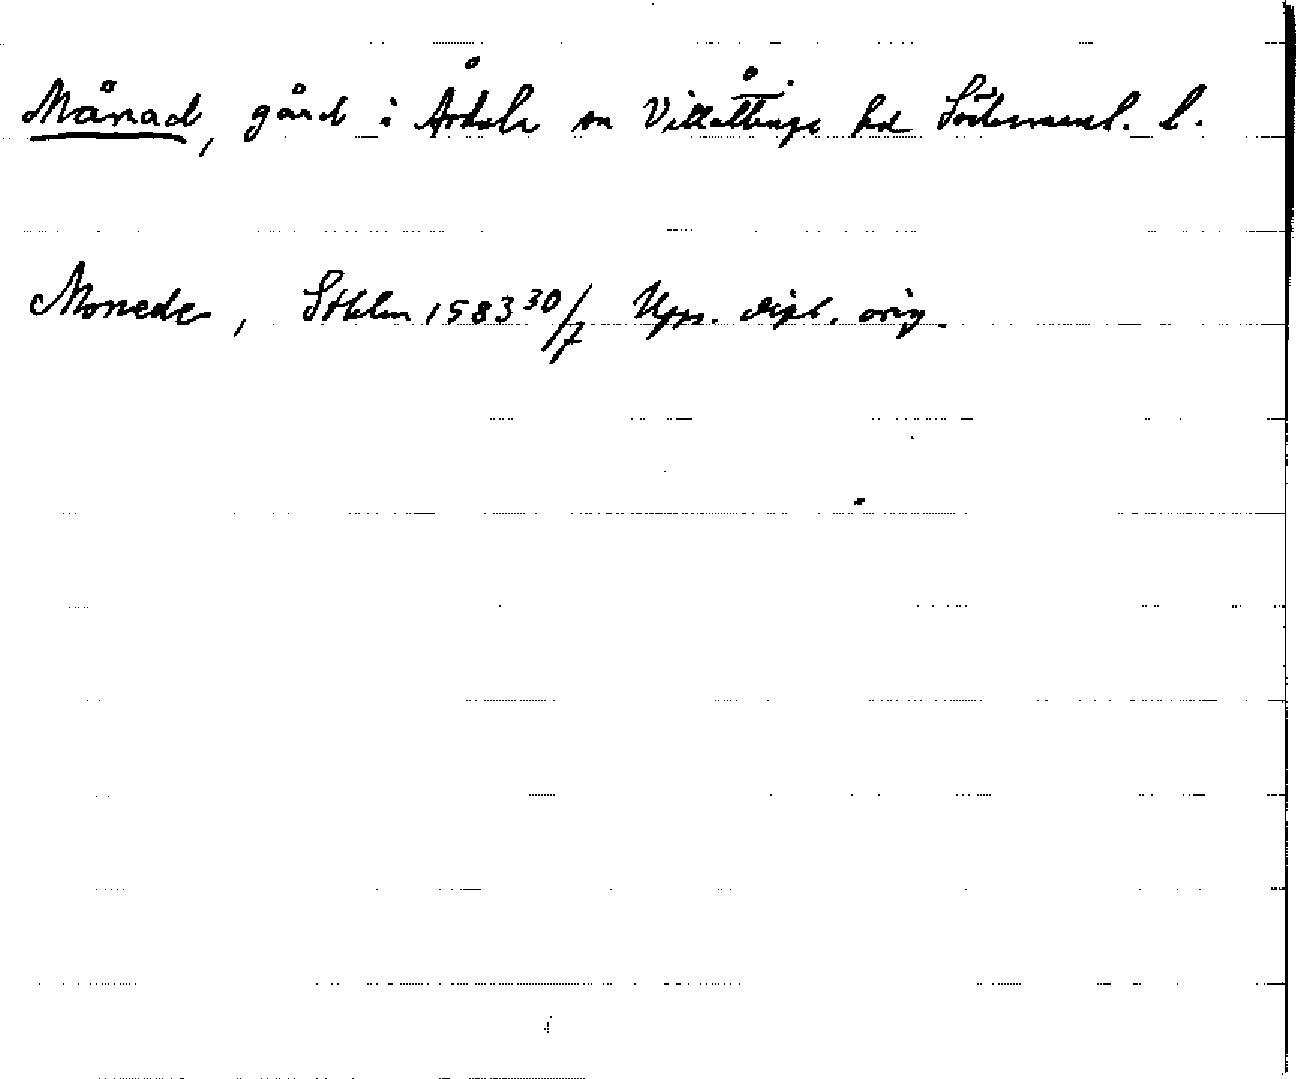 Månad, gård i Årdala sn Villåttinge hd Södermanl. l.
Monede, Sthlm 1583 30/7 Upps. dipl. orig.